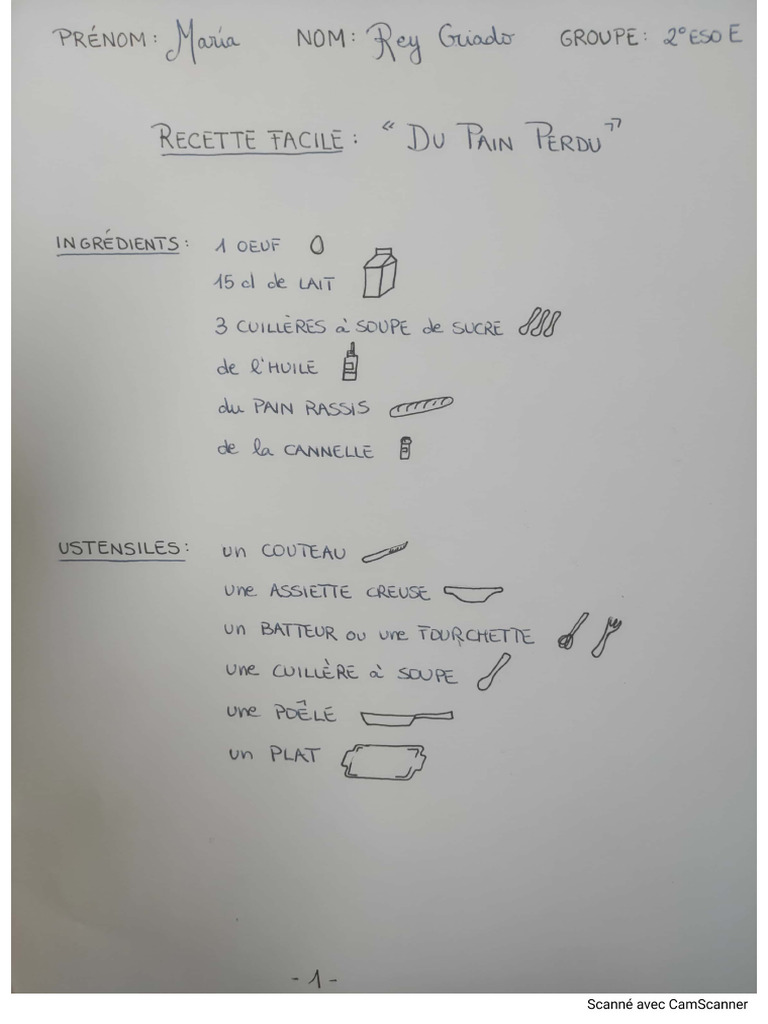 PRÉNOM: María NOM: Rey Criado GROUPE: 2º ESO E
RECETTE FACILE: “DU PAIN PERDU”
INGRÉDIENTS: 1 OEUF
15 cl de LAIT
3 CUILLÈRES à SOUPE de SUCRE
de l'HUILE
du PAIN RASSIS
de la CANNELLE
USTENSILES: un COUTEAU
une ASSIETTE CREUSE
un BATTEUR ou une FOURCHETTE
une CUILLÈRE à SOUPE
une POÊLE
un PLAT
- 1 -
Scanné avec CamScanner